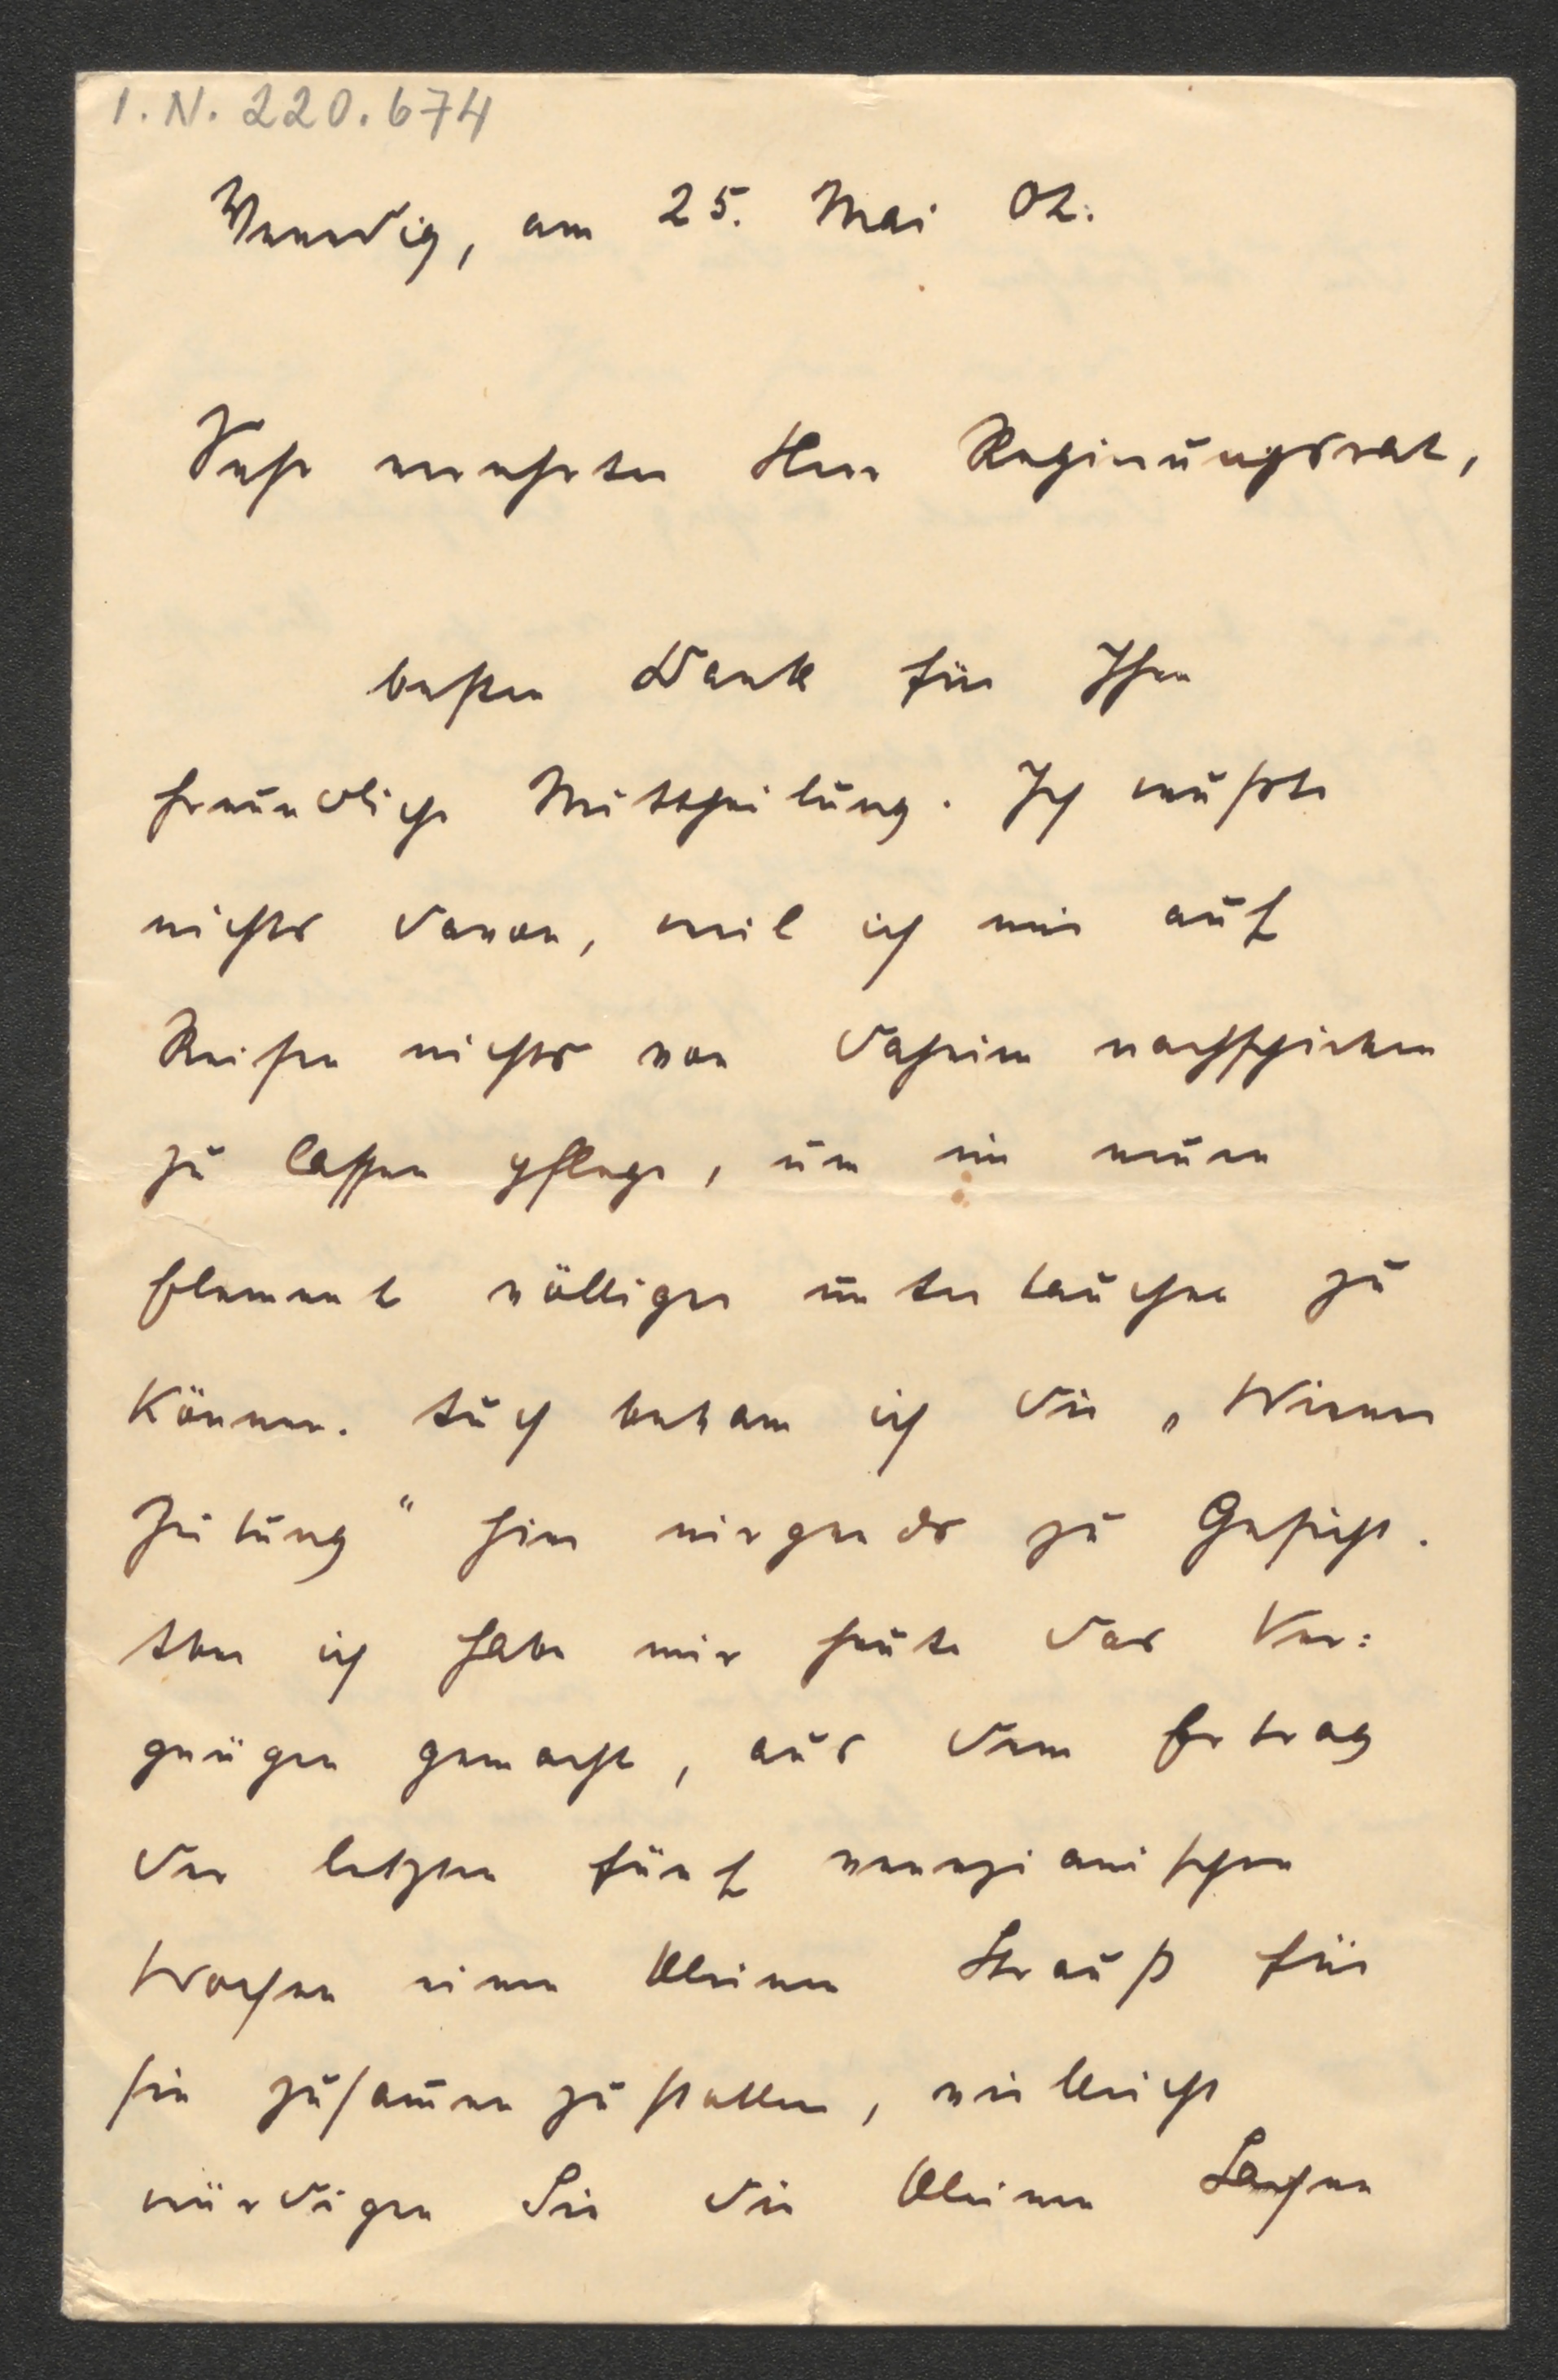 I.N. 220.674
Venedig, am 25. Mai 02.
Sehr verehrter Herr Regierungsrat,
besten Dank für Ihre
freundliche Mittheilung. Ich wußte
nichts davon, weil ich mir auf
Reisen nichts von daheim nachschicken
zu lassen pflege, um im neuen
Element völliger untertauchen zu
können. Auch bekam ich die „Wiener
Zeitung“ hier nirgends zu Gesicht.
Aber ich habe mir heute das Ver:
gnügen gemacht, aus dem Ertrag
der letzten fünf venezianischen
Wochen einen kleinen Strauß für
sie zusam̅enzustellen, vielleicht
würdigen Sie die kleinen Sachen